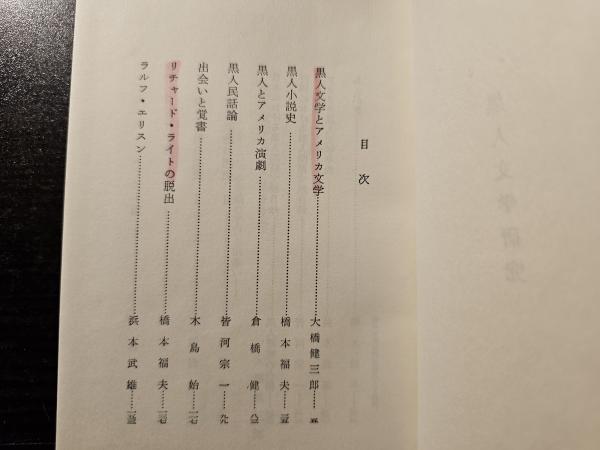 目次
黒人文学とアメリカ文学……大橋健三郎……五
黒人小説史……橋本福夫……三五
黒人とアメリカ演劇……倉橋健……
黒人民話論……皆河宗一……九九
出会いと覚書……木島始……
リチャード・ライトの脱出……橋本福夫……
ラルフ・エリスン……浜本武雄……